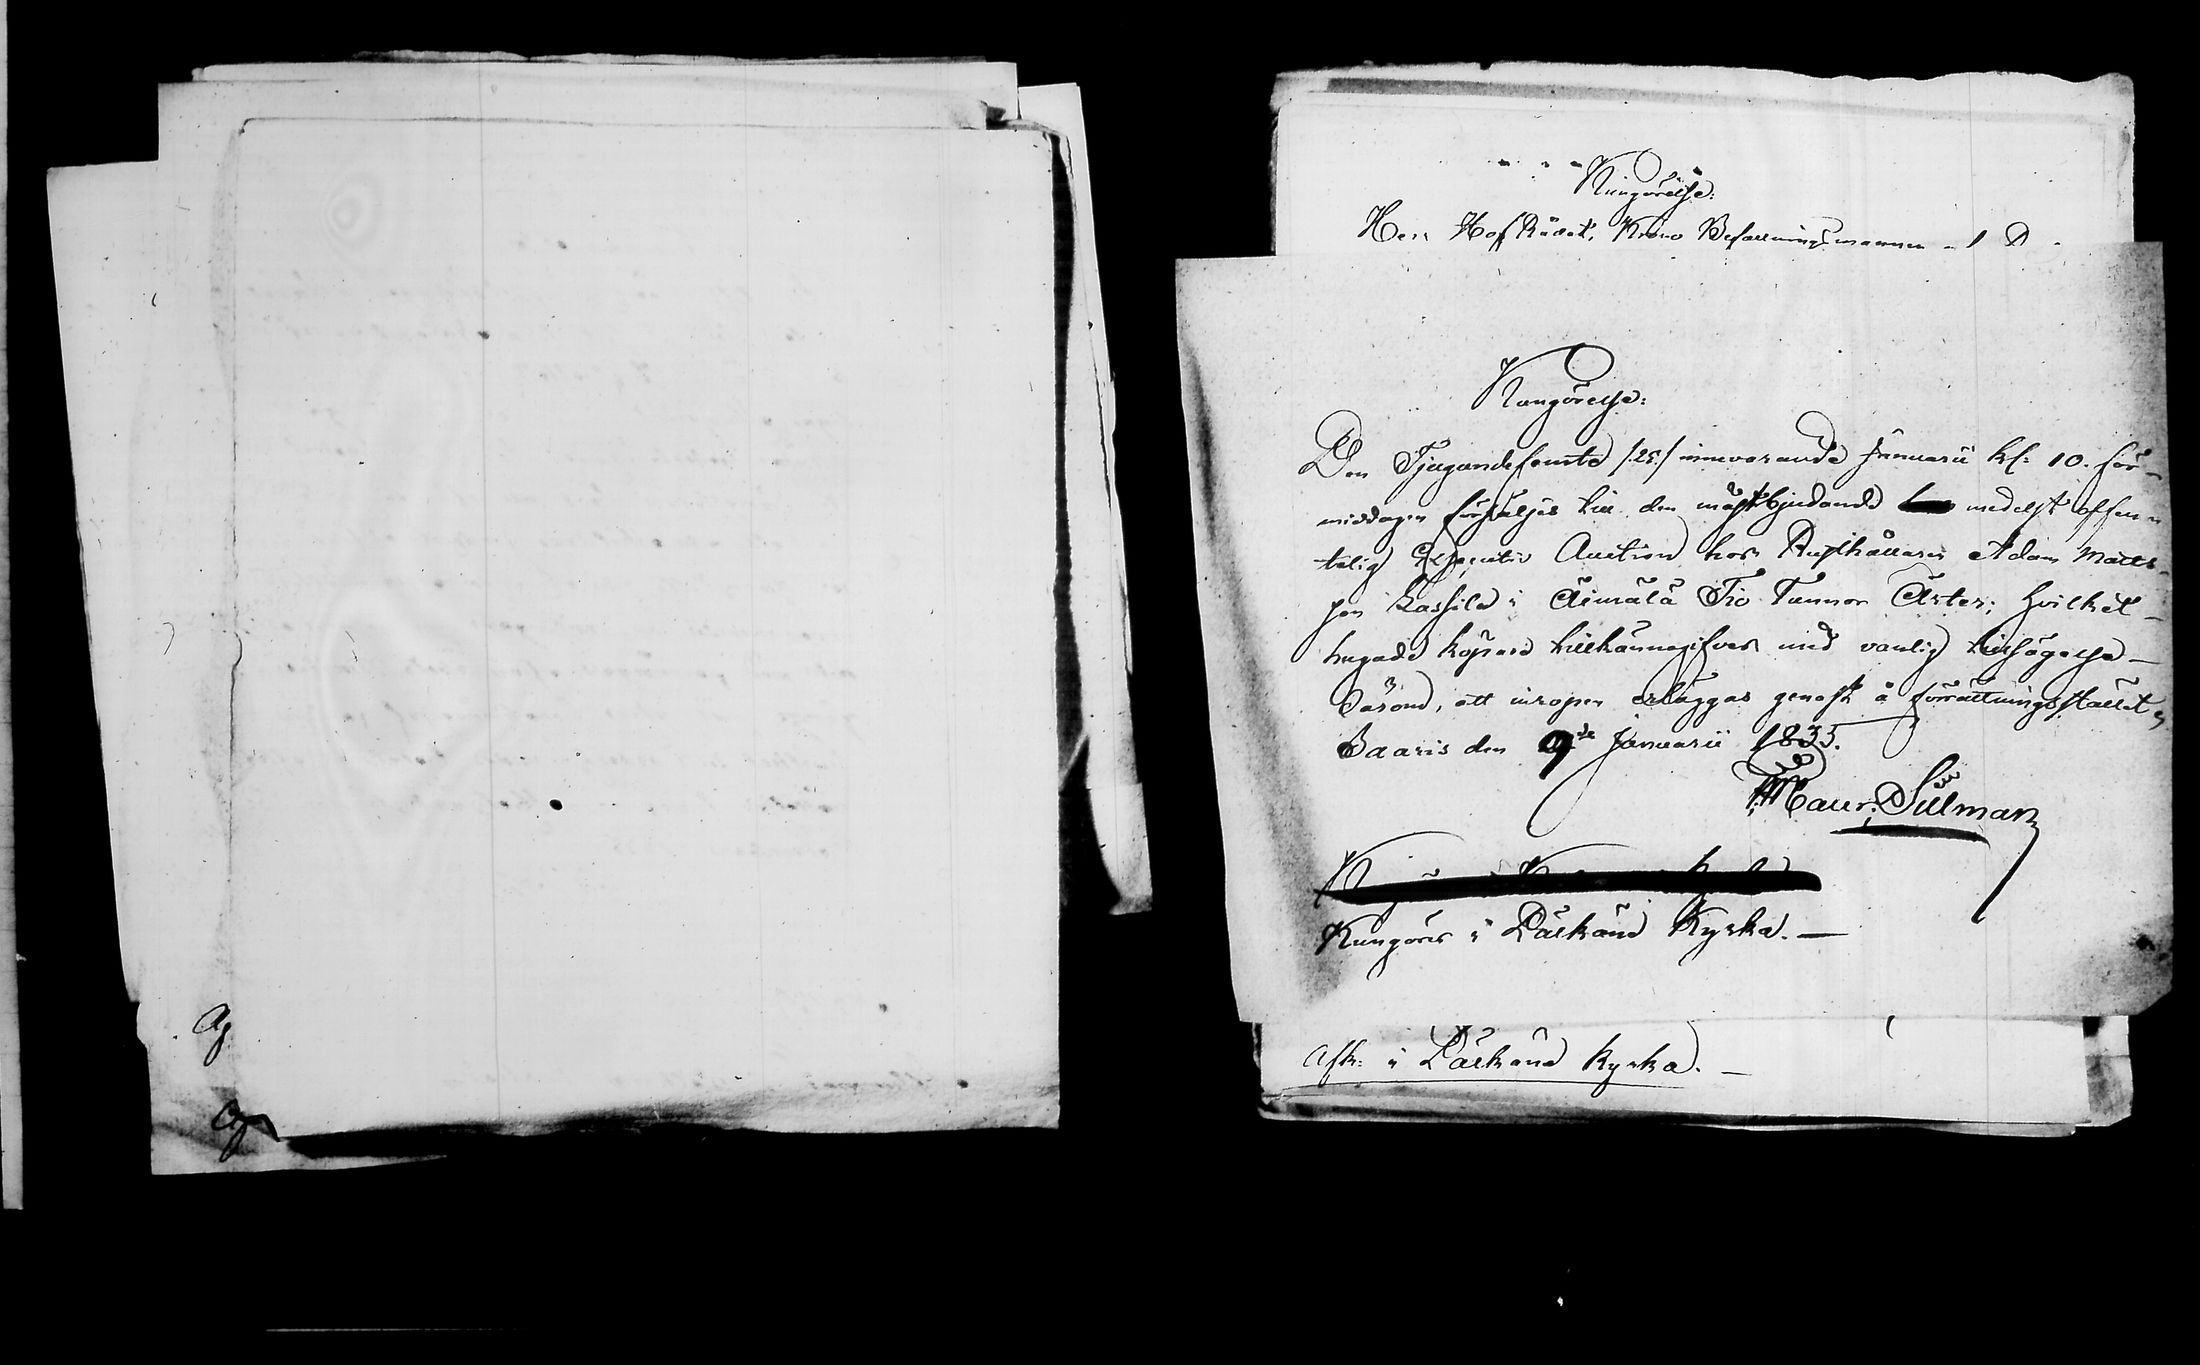 Kungörelse:
Herr HofRådet, Krono Befallningsmannen
Kungörelse:
Den Tjugondefemte /:25:/ innevarande Januarii kl: 10. för-
middagen försäljes till den mästbjudande medelst offen-
telig Executiv Auction hos Rusthållaren Adam Matts-
son Kassila i Äimälä Tio Tunnor Ärter; hvilket
hugade köpare tillkännagifves med vanlig tillsägelse
därom, att inropen erläggas genast å förrättningsstället,
Baaris den 9de Januarii 1835.
Maur: Silman
Kungöres i Pälkäne Kyrka. —
Afk: i Pälkäne kyrka. —